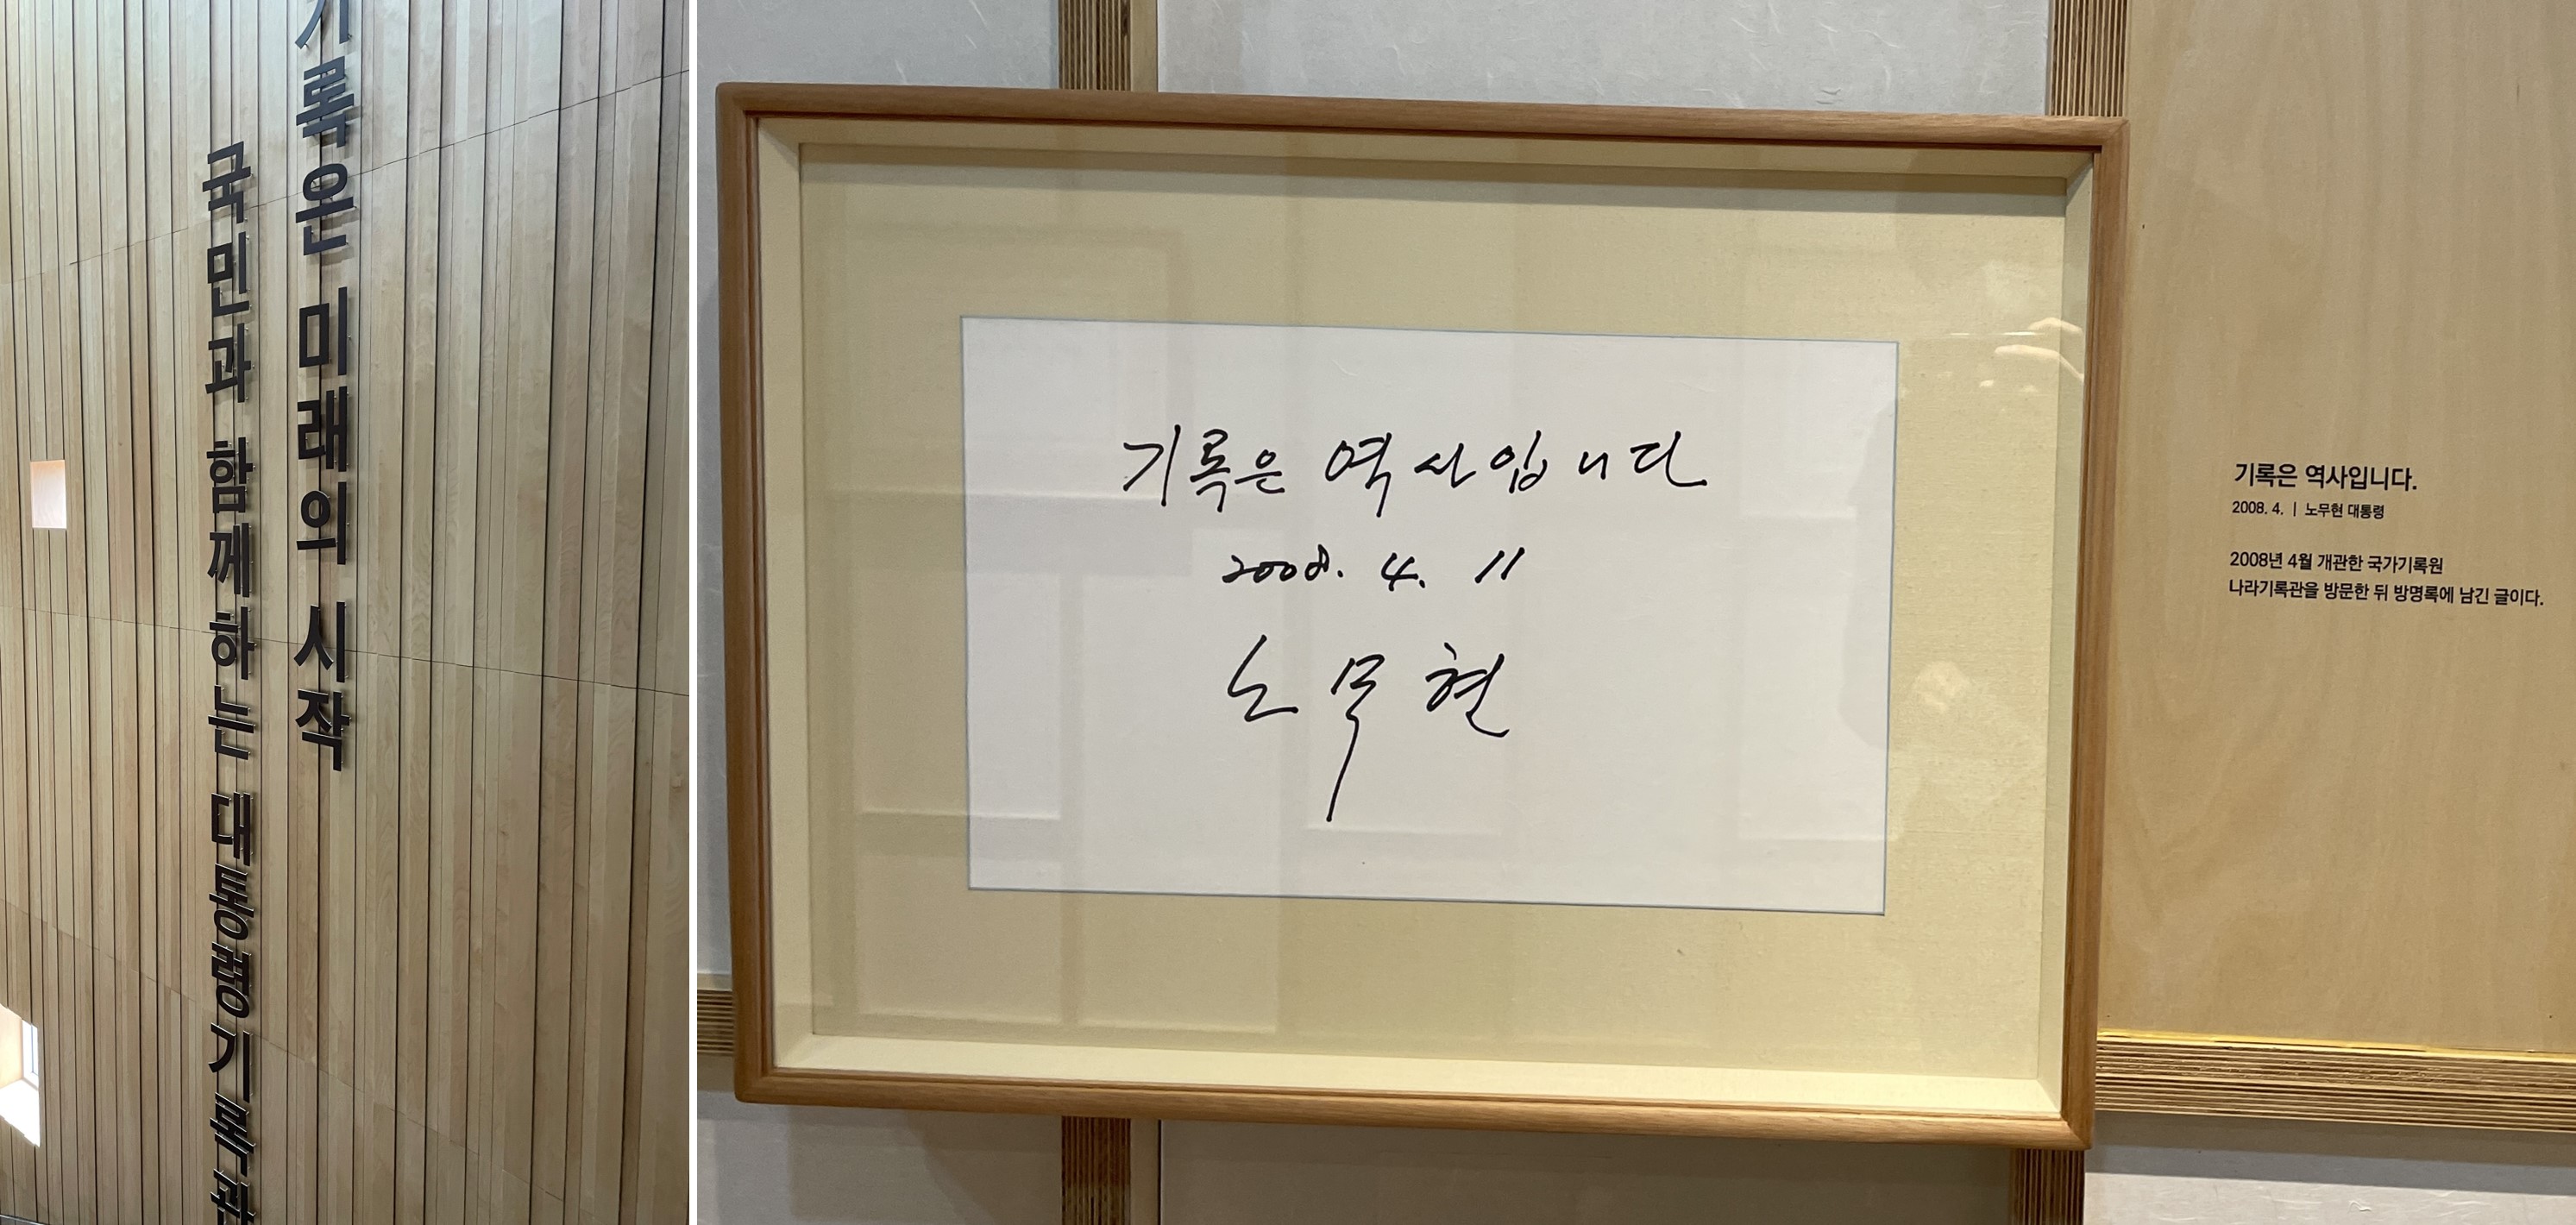 기록은 미래의 시작
국민과 함께하는 대통령기록관
기록은 역사입니다
2008. 4. 11
노무현
기록은 역사입니다.
2008. 4. | 노무현 대통령
2008년 4월 개관한 국가기록원
나라기록관을 방문한 뒤 방명록에 남긴 글이다.